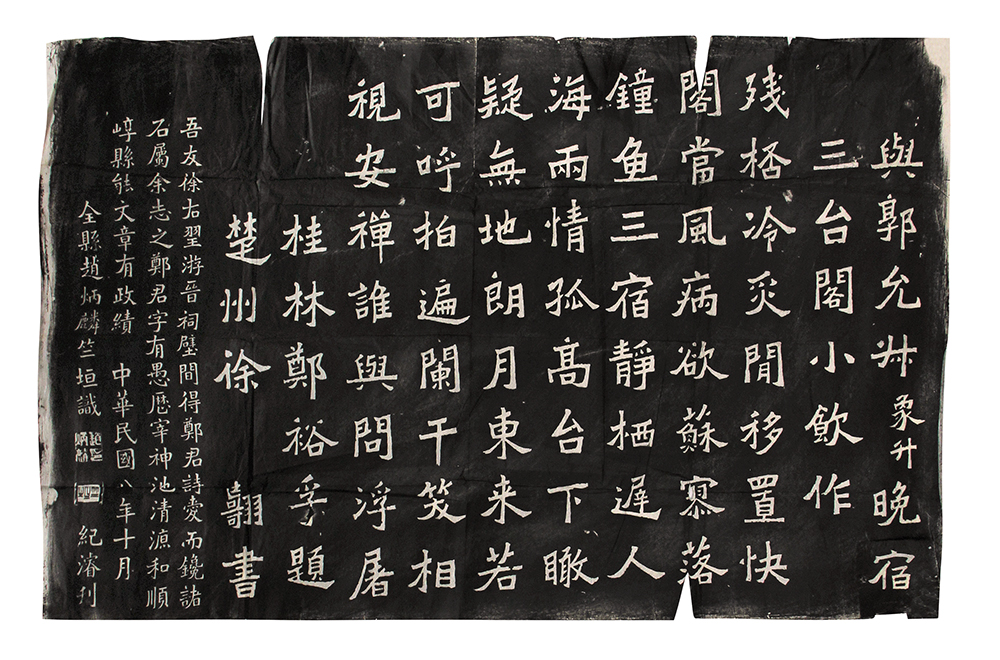 與郭允叔象升晚宿
三台閣小飲作
残桮冷炙閒移置快
閣當風病欲蘇寥落
鐘鱼三宿静栖遲人
海雨情孤高台下瞰
疑無地朗月東来若
可呼拍遍闌干笑相
視安禅誰與問浮屠
桂林鄭裕孚題
楚州徐翿書
吾友徐右翌游晉祠壁間得鄭君詩愛而鑱諸
石屬余志之鄭君字有愚歷宰神池清源和順
崞縣能文章有政績 中華民國八年十月
全縣趙炳麟竺垣識 紀濬刊